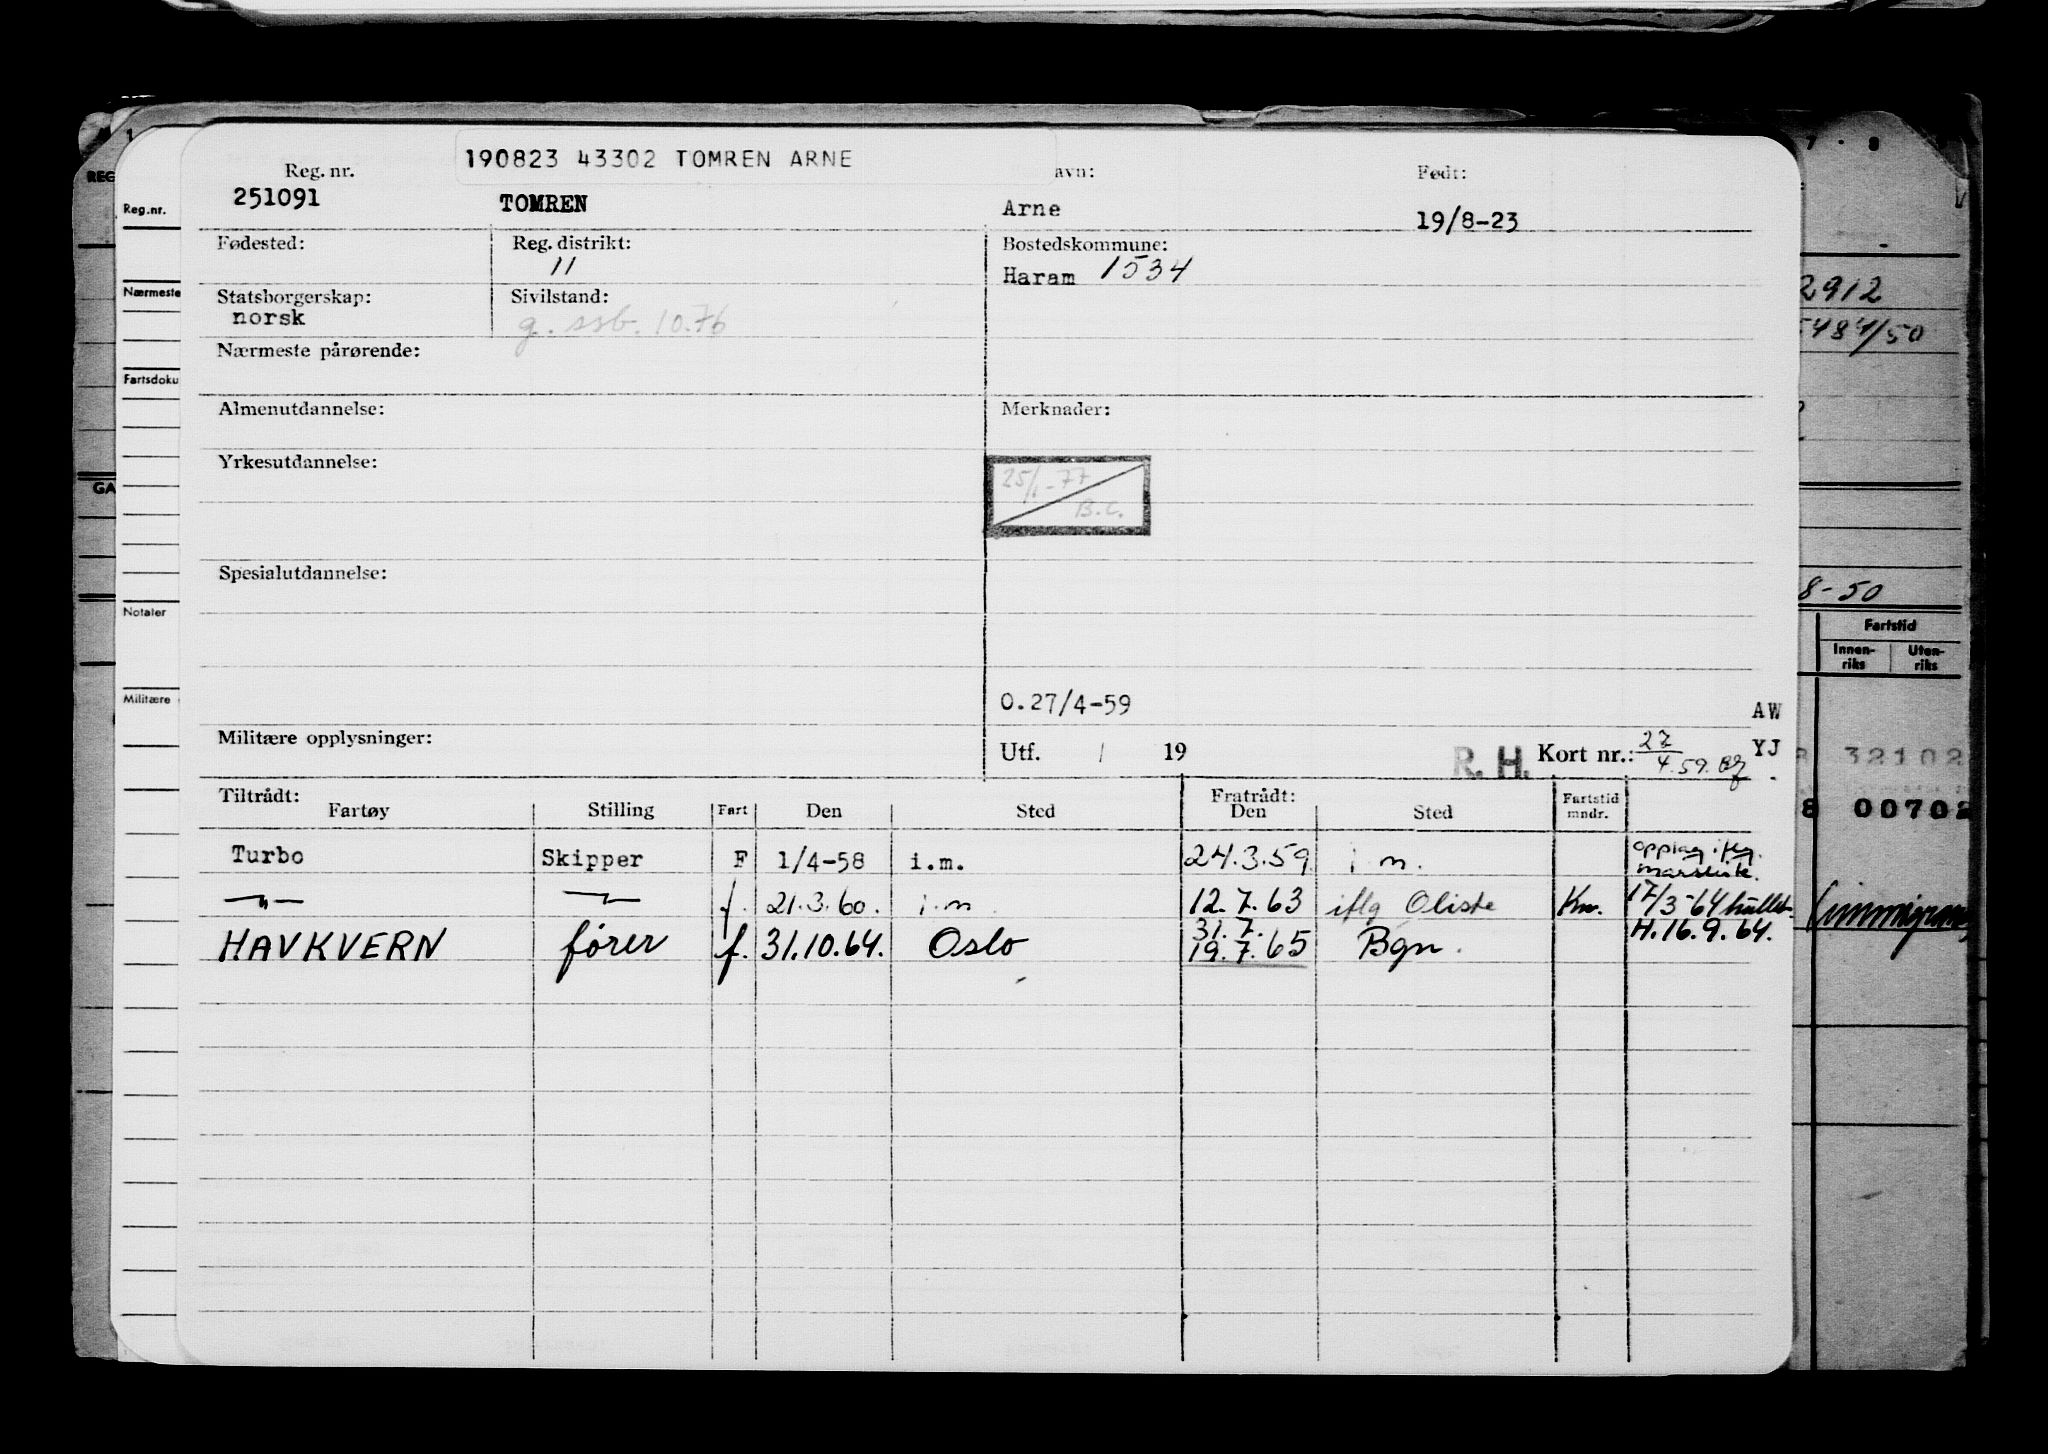 190823 43302 TOMREN ARNE
Reg. nr. avn: Født:
251091 TOMREN Arne 19/8-23
Fødested: Reg. distrikt: Bostedskommune:
11 Haram 1534
Statsborgerskap: Sivilstand:
norsk g. ssb. 10.76
Nærmeste pårørende:
Almenutdannelse: Merknader:
Yrkesutdannelse:
25/1-77
B.C.
Spesialutdannelse:
O.27/4-59 AW
Militære opplysninger: Utf. / 19 R. H. Kort nr.: 27/4.59. YJ
Tiltrådt: Fratrådt:
Fartøy Stilling Fart Den Sted Den Sted Fartstid mndr.
Turbo Skipper F 1/4-58 i.m. 24.3.59 i.m. opplag iflg.
mønstr.
—"— —"— f. 21.3.60. i.m 12.7.63 iflg Oliste Kn. 17/3-64 hullet.
31.7. H.16.9.64.
HAVKVERN fører f. 31.10.64. Oslo 19.7.65 Bgn.
REG
Reg.nr.
Nærmeste
Fartsdoku
GA
Notater
Militære
7 · 8
2912
5484/50
8-50
Fartstid
Innen-riks Uten-riks
32102
8 00702